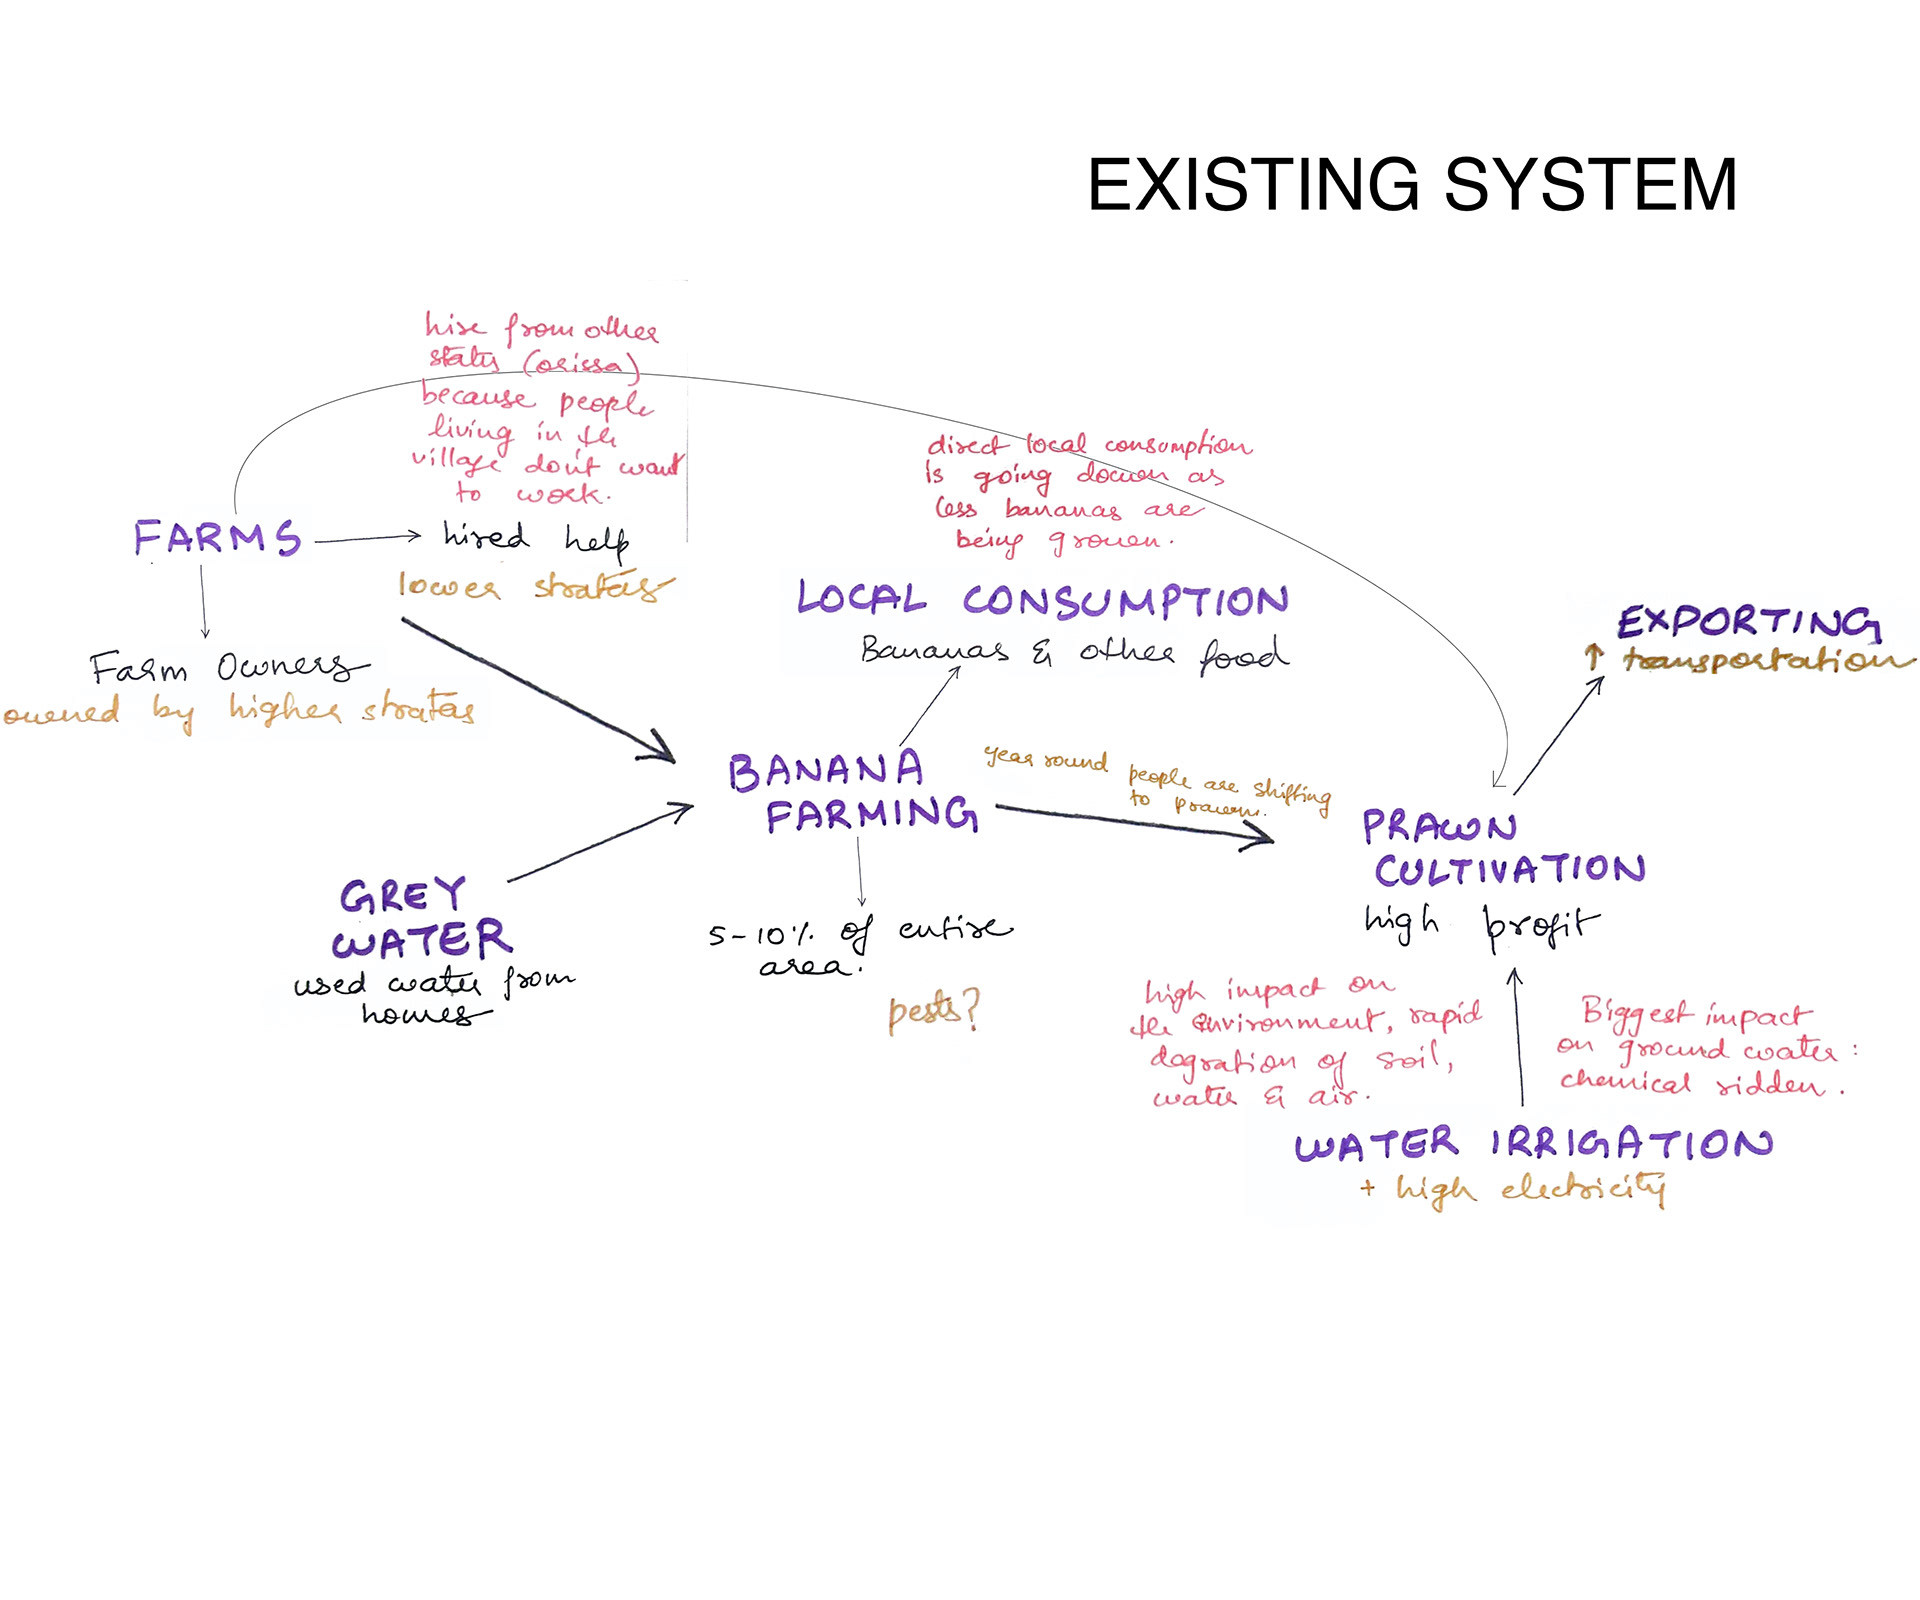 EXISTING SYSTEM
hire from other
states (orissa)
because people
living in the
village don't want
to work.
FARMS
hired help
lower stratas
Farm Owners
owned by higher stratas
direct local consumption
is going down as
less bananas are
being grown.
LOCAL CONSUMPTION
Bananas & other food
EXPORTING
↑ transportation
BANANA
FARMING
year round people are shifting
to prawn.
PRAWN
CULTIVATION
high profit
GREY
WATER
used water from
homes
5-10% of entire
area.
pests?
high impact on
the environment, rapid
degration of soil,
water & air.
Biggest impact
on ground water:
chemical ridden.
WATER IRRIGATION
+ high electricity